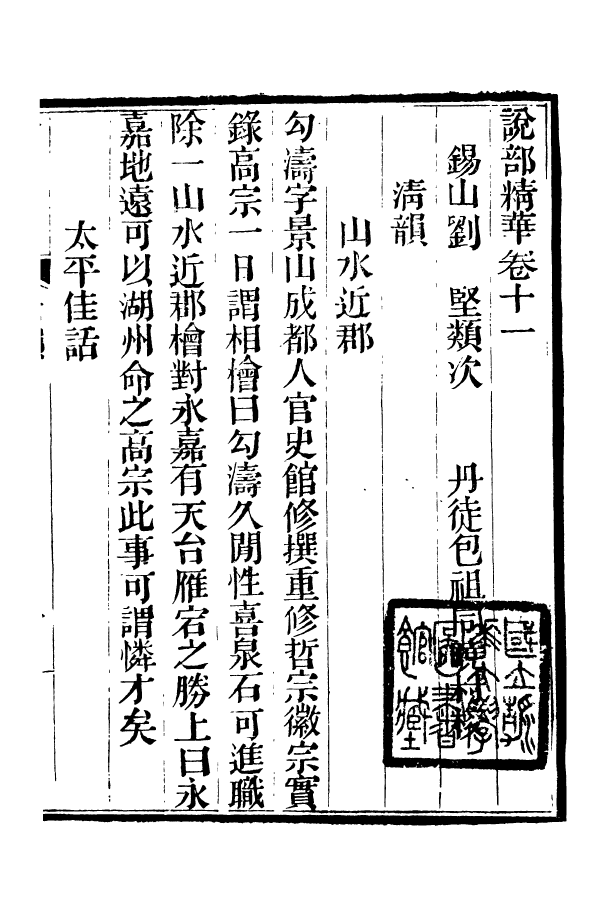 說部精華卷十一
錫山劉　堅類次　　丹徒包祖同
清韻
山水近郡
勾濤字景山成都人官史館修撰重修哲宗徽宗實
錄高宗一日謂相檜曰勾濤久閒性喜泉石可進職
除一山水近郡檜對永嘉有天台雁宕之勝上曰永
嘉地遠可以湖州命之高宗此事可謂憐才矣
太平佳話